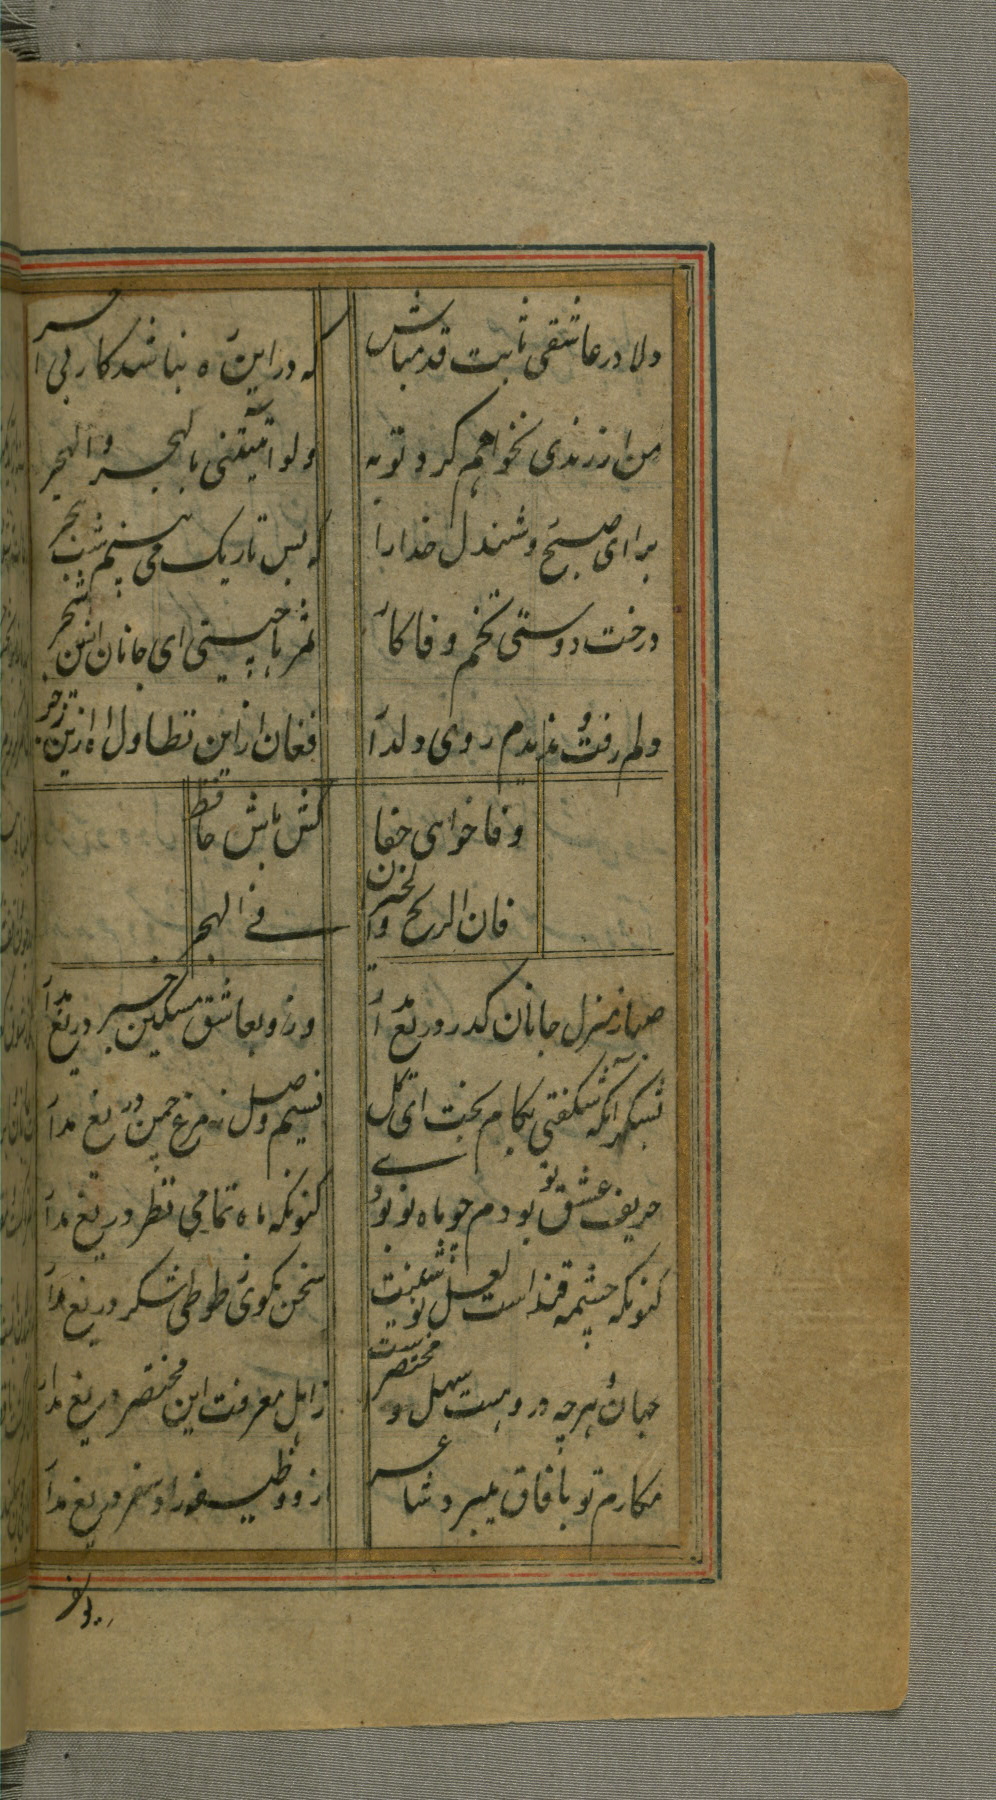 دلا در عاشقی ثابت قدم باش که در این ره نباشد کار بی اجر
من از رندی نخواهم کرد توبه ولو آتیتنی بالهجر والهجر
برای صبح روشندل خدا را که بس تاریک می بینم شب هجر
درخت دوستی تخم وفا کار ثمر ها چیستی ای جانان این شجر
دلم رفت و ندیدم روی دلدار فغان از این تطاول آه ازین زجر
وفا خواهی جفا کش باش حافظ
فان الربح والخسران فی الهجر
صبا ز منزل جانان گذر دریغ مدار وزو بعاشق مسکین خبر دریغ مدار
بشکر آنکه شکفتی بکام بخت ای گل نسیم وصل ز مرغ چمن دریغ مدار
حریف عشق تو بودم چو ماه نو بودی کنونکه ماه تمامی نظر دریغ مدار
کنونکه چشمه قند است لعل نوشینت سخن بگوی ز طوطی شکر دریغ مدار
جهان و هرچه درو هست سهل و مختصرست ز اهل معرفت این مختصر دریغ مدار
مکارم تو بآفاق میبرد شاعر ازو وظیفه و زاد سفر دریغ مدار